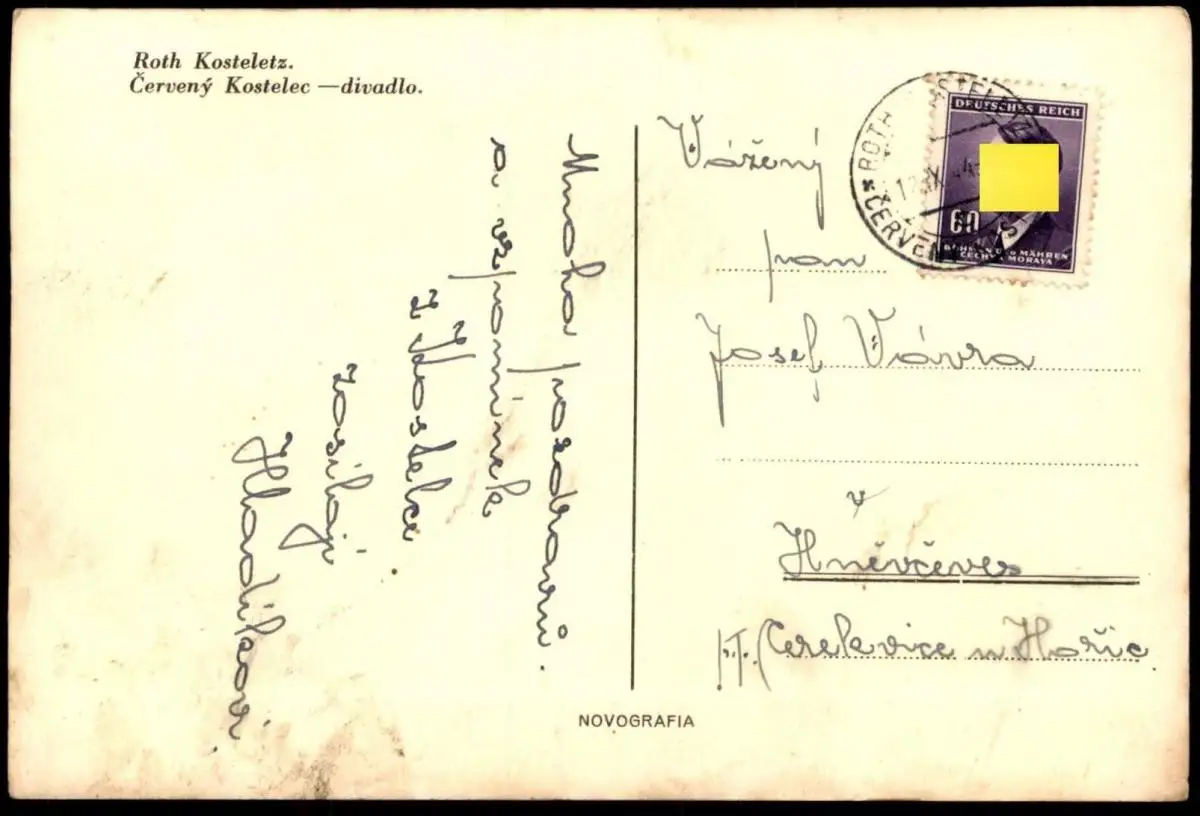 Roth Kosteletz.
Červený Kostelec — divadlo.
Mnoho pozdravů
a vzpomínek
z Kostelce
zasílají
Hladíkovi.
Vážený
pan
Josef Vávra
v
Hněvčeves
p.T. Cerekvice u Hořic
NOVOGRAFIA
DEUTSCHES REICH
60
BÖHMEN UND MÄHREN
ČECHY A MORAVA
ROTH KOSTELETZ
ČERVENÝ